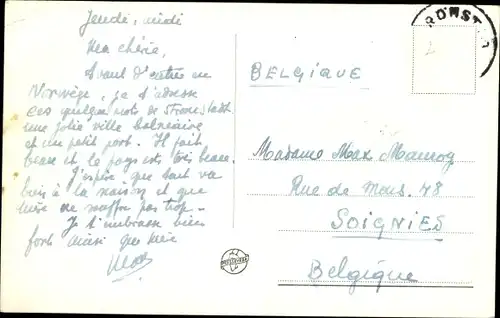 Jeudi, midi
Ma chérie,
Avant d'entrer en
Norvège, je t'adresse
ces quelques mots de Stromstadt
une jolie ville balnéaire
et un petit port. Il fait
beau et le pays est très beau.
J'espère que tout va
bien à la maison et que
ne souffre pas trop.
Je t'embrasse bien
fort ainsi que
Max
RÖMST
BELGIQUE
Madame Max Mauroy
Rue de Mons. 48
SOIGNIES
Belgique